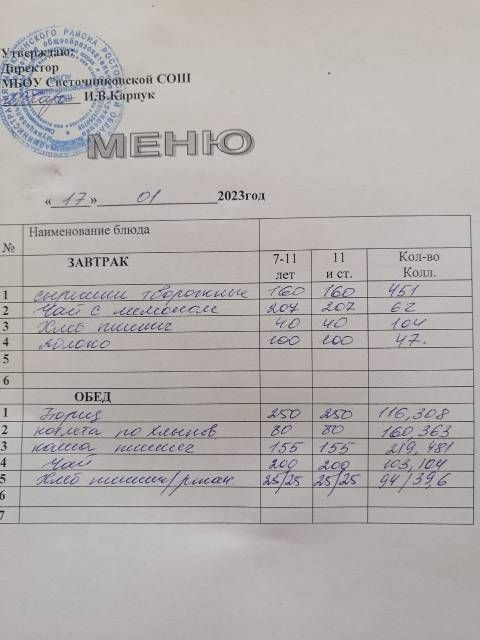 Утверждаю:
Директор
МБОУ Светочниковской СОШ
И.В.Карпук
МЕНЮ
«17» 01 2023год
№ Наименование блюда
ЗАВТРАК 7-11 лет 11 и ст. Кол-во Колл.
1 сырники творожные 160 160 451
2 Чай с лимоном 207 207 62
3 Хлеб пшенич 40 40 104
4 яблоко 100 100 47.
5
6
ОБЕД
1 Борщ 250 250 116,308
2 котлета по Хлынов 80 80 160.363
3 каша пшенич 155 155 219,481
4 Чай 200 200 103,104
5 Хлеб пшенич/ржан 25/25 25/25 94/39,6
6
7